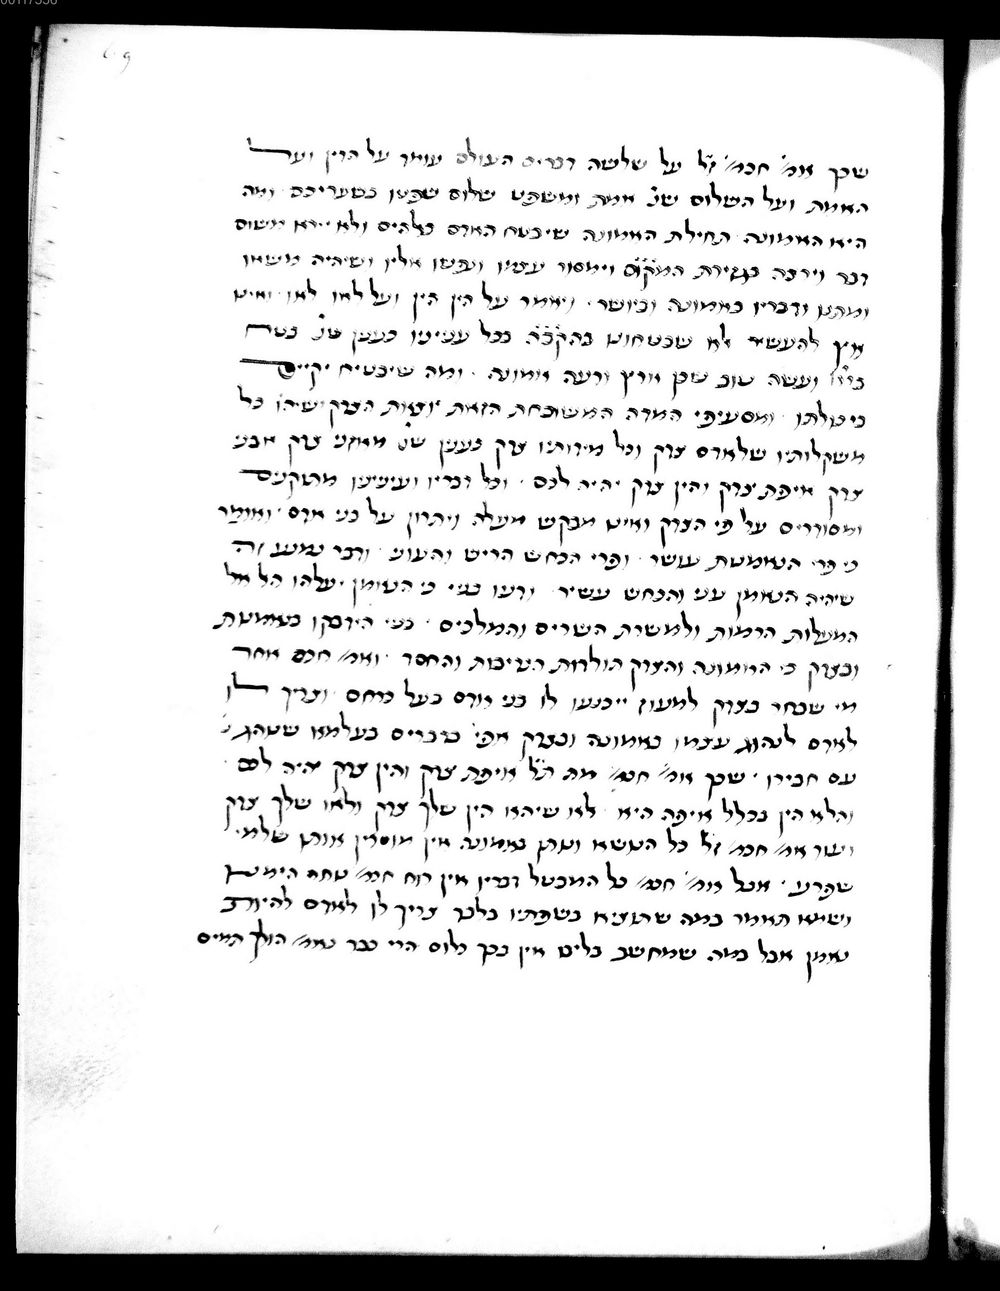 שכך אמ' חכמ' ז"ל על שלשה דברים העולם עומד על הדין ועל
האמת ועל השלום שנ' אמת ומשפט שלום שפטו בשעריכם ומה
היא האמונה תחילת האמונה שיבטח האדם באלהים ולא יירא משום
דבר וירצה בגזירת המקום וימסור עצמו ונפשו אליו ושיהיה משאו
ומתנו ודבריו באמונה וביושר ויאמר על הין הין ועל לאו לאו ואיש
אץ להעשיר לא שבטחונו בהקב"ה בכל ענייניו כענין שנ' בטח
בי"י ועשה טוב שכן ארץ ורעה אמונה ומה שיבטיח יקיים
כיכולתו ומסעיפי המדה המשובחת הזאת יוצאות הצדק שיהו כל
משקלותיו שלאדם צדק וכל מידותיו צדק כענין שנ' מאזני צדק אבני
צדק איפת צדק והין צדק יהיה לכם וכל דבריו וענייניו מתוקנים
ומסודרים על פי הצדק ואיש מבקש מעלה ויתרון על בני אדם ואומר
כי פרי הנאמנות עושר ופרי הכחש הריש והעוני ודבר נמנע זה
שיהיה הנאמן עני והכחש עשיר ודעו בניי כי הנאמן יעלהו האל אל
המעלות הרמות ולמשרת השרים והמלכים בניי הידבקו בנאמנות
ובצדק כי האמונה והצדק תולדות הטיבות והחסד ואמ' חכם אחד
מי שבחר בצדק למעוז ייכנעו לו בני אדם בעל כרחם וצריך לו
לאדם לנהוג עצמו באמונה ובצדק אפי' בדברים בעלמא שנוהג
עם חבירו שכך אמ' חכמ' מה ת"ל איפת צדק והין צדק יהיה לכם
והלא הין בכלל איפה היא לא שיהא הין שלך צדק ולאו שלך צדק
ועוד אמ' חכמ' ז"ל כל הנושא ונותן באמונה אין מוסרין אותו שלמי
שפרע אבל אמ' חכמ' כל המבטל דבריו אין רוח חכמ' נוחה הימנו
ושמא תאמר במה שתוציא בשפתיו בלבד צריך לו לאדם להיות
נאמן אבל במה שמחשב בליבו אין בכך כלום הרי כבר נאמ' הולך תמים